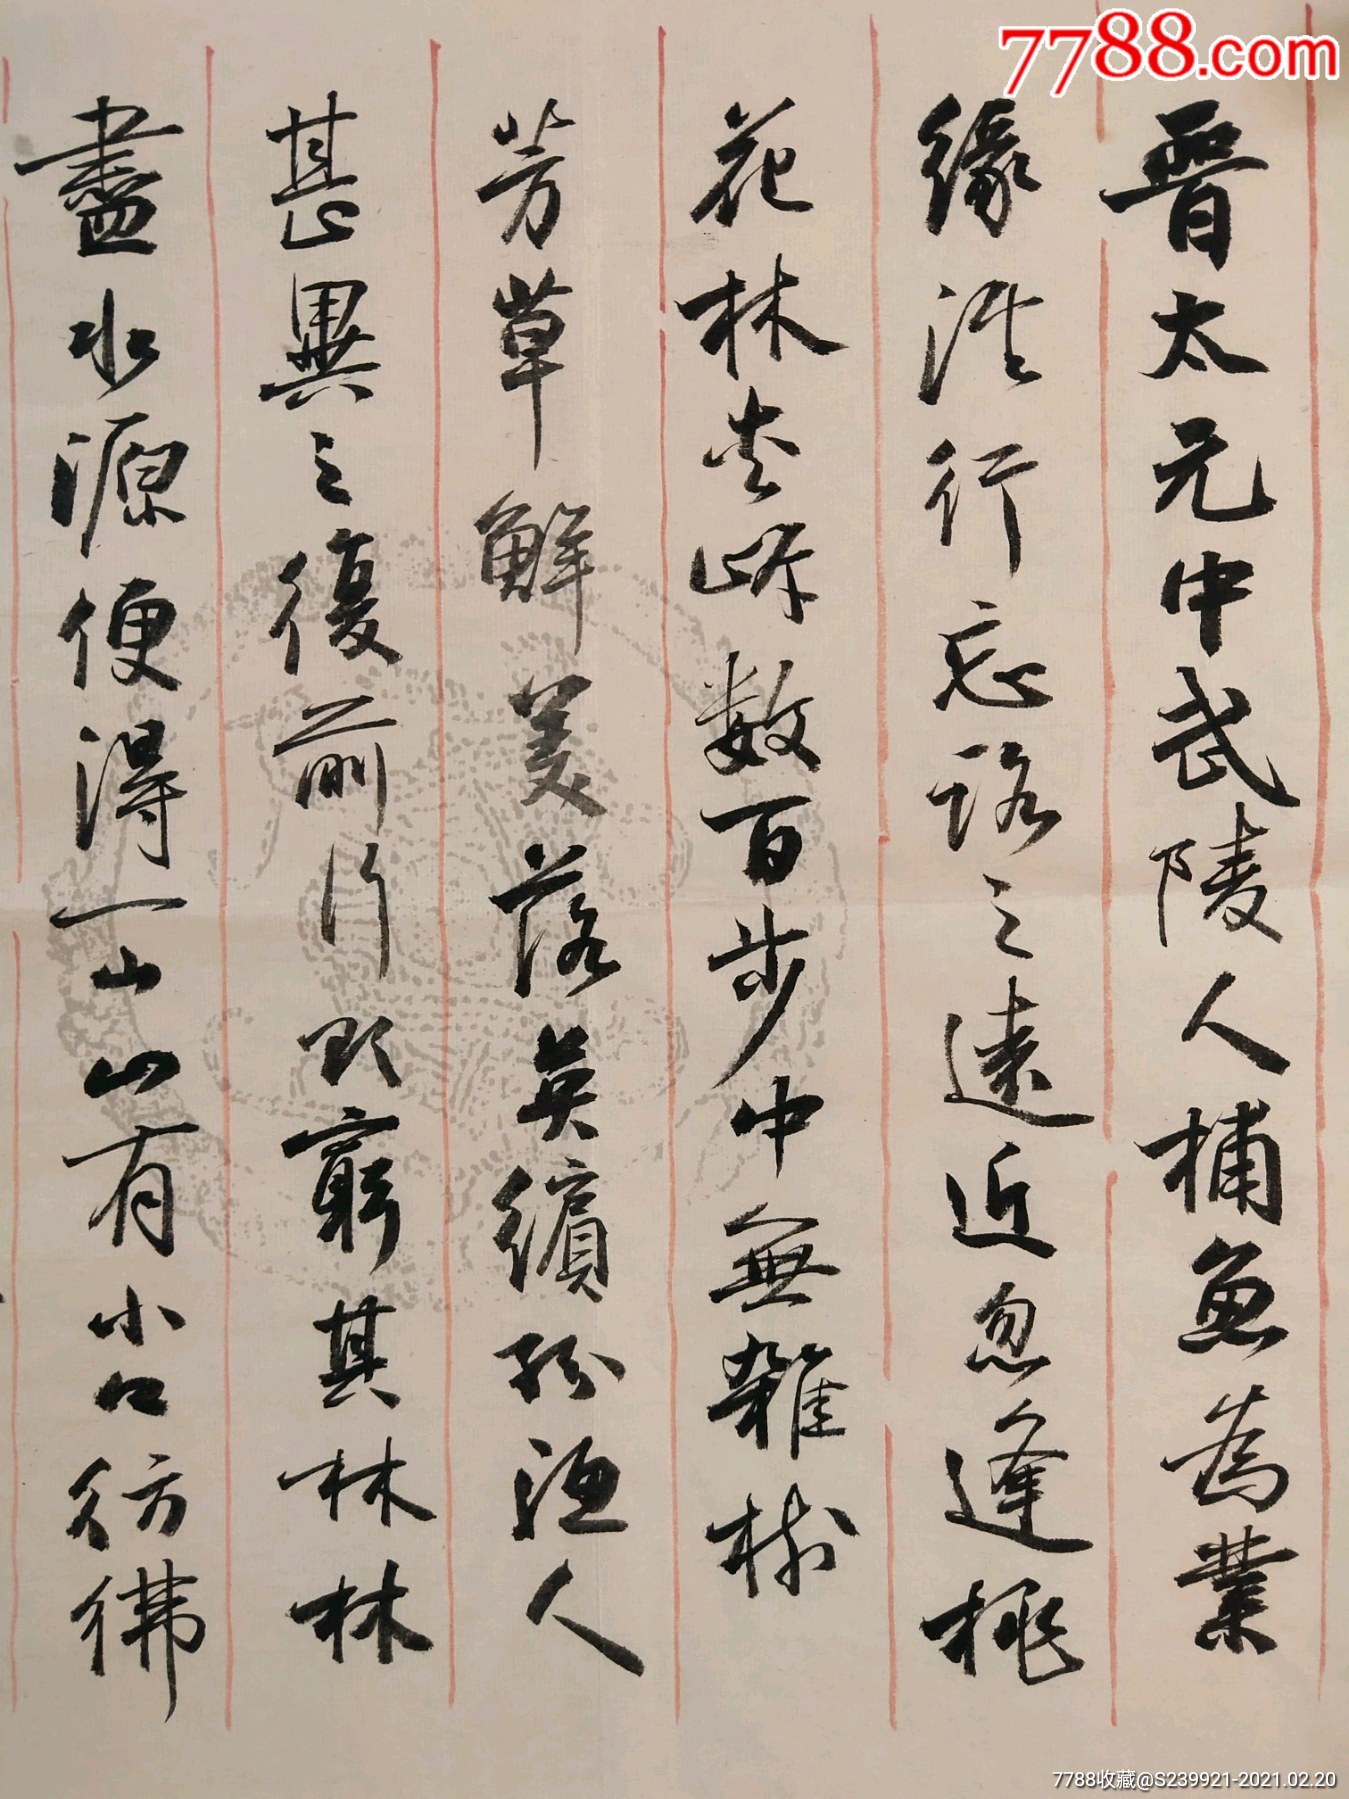 7788.com
晋太元中武陵人捕魚為業
緣溪行忘路之遠近忽逢桃
花林夾岸數百步中無雜樹
芳草鮮美落英繽紛漁人
甚異之復前行欲窮其林林
盡水源便得一山山有小口彷彿
7788收藏@S239921-2021.02.20